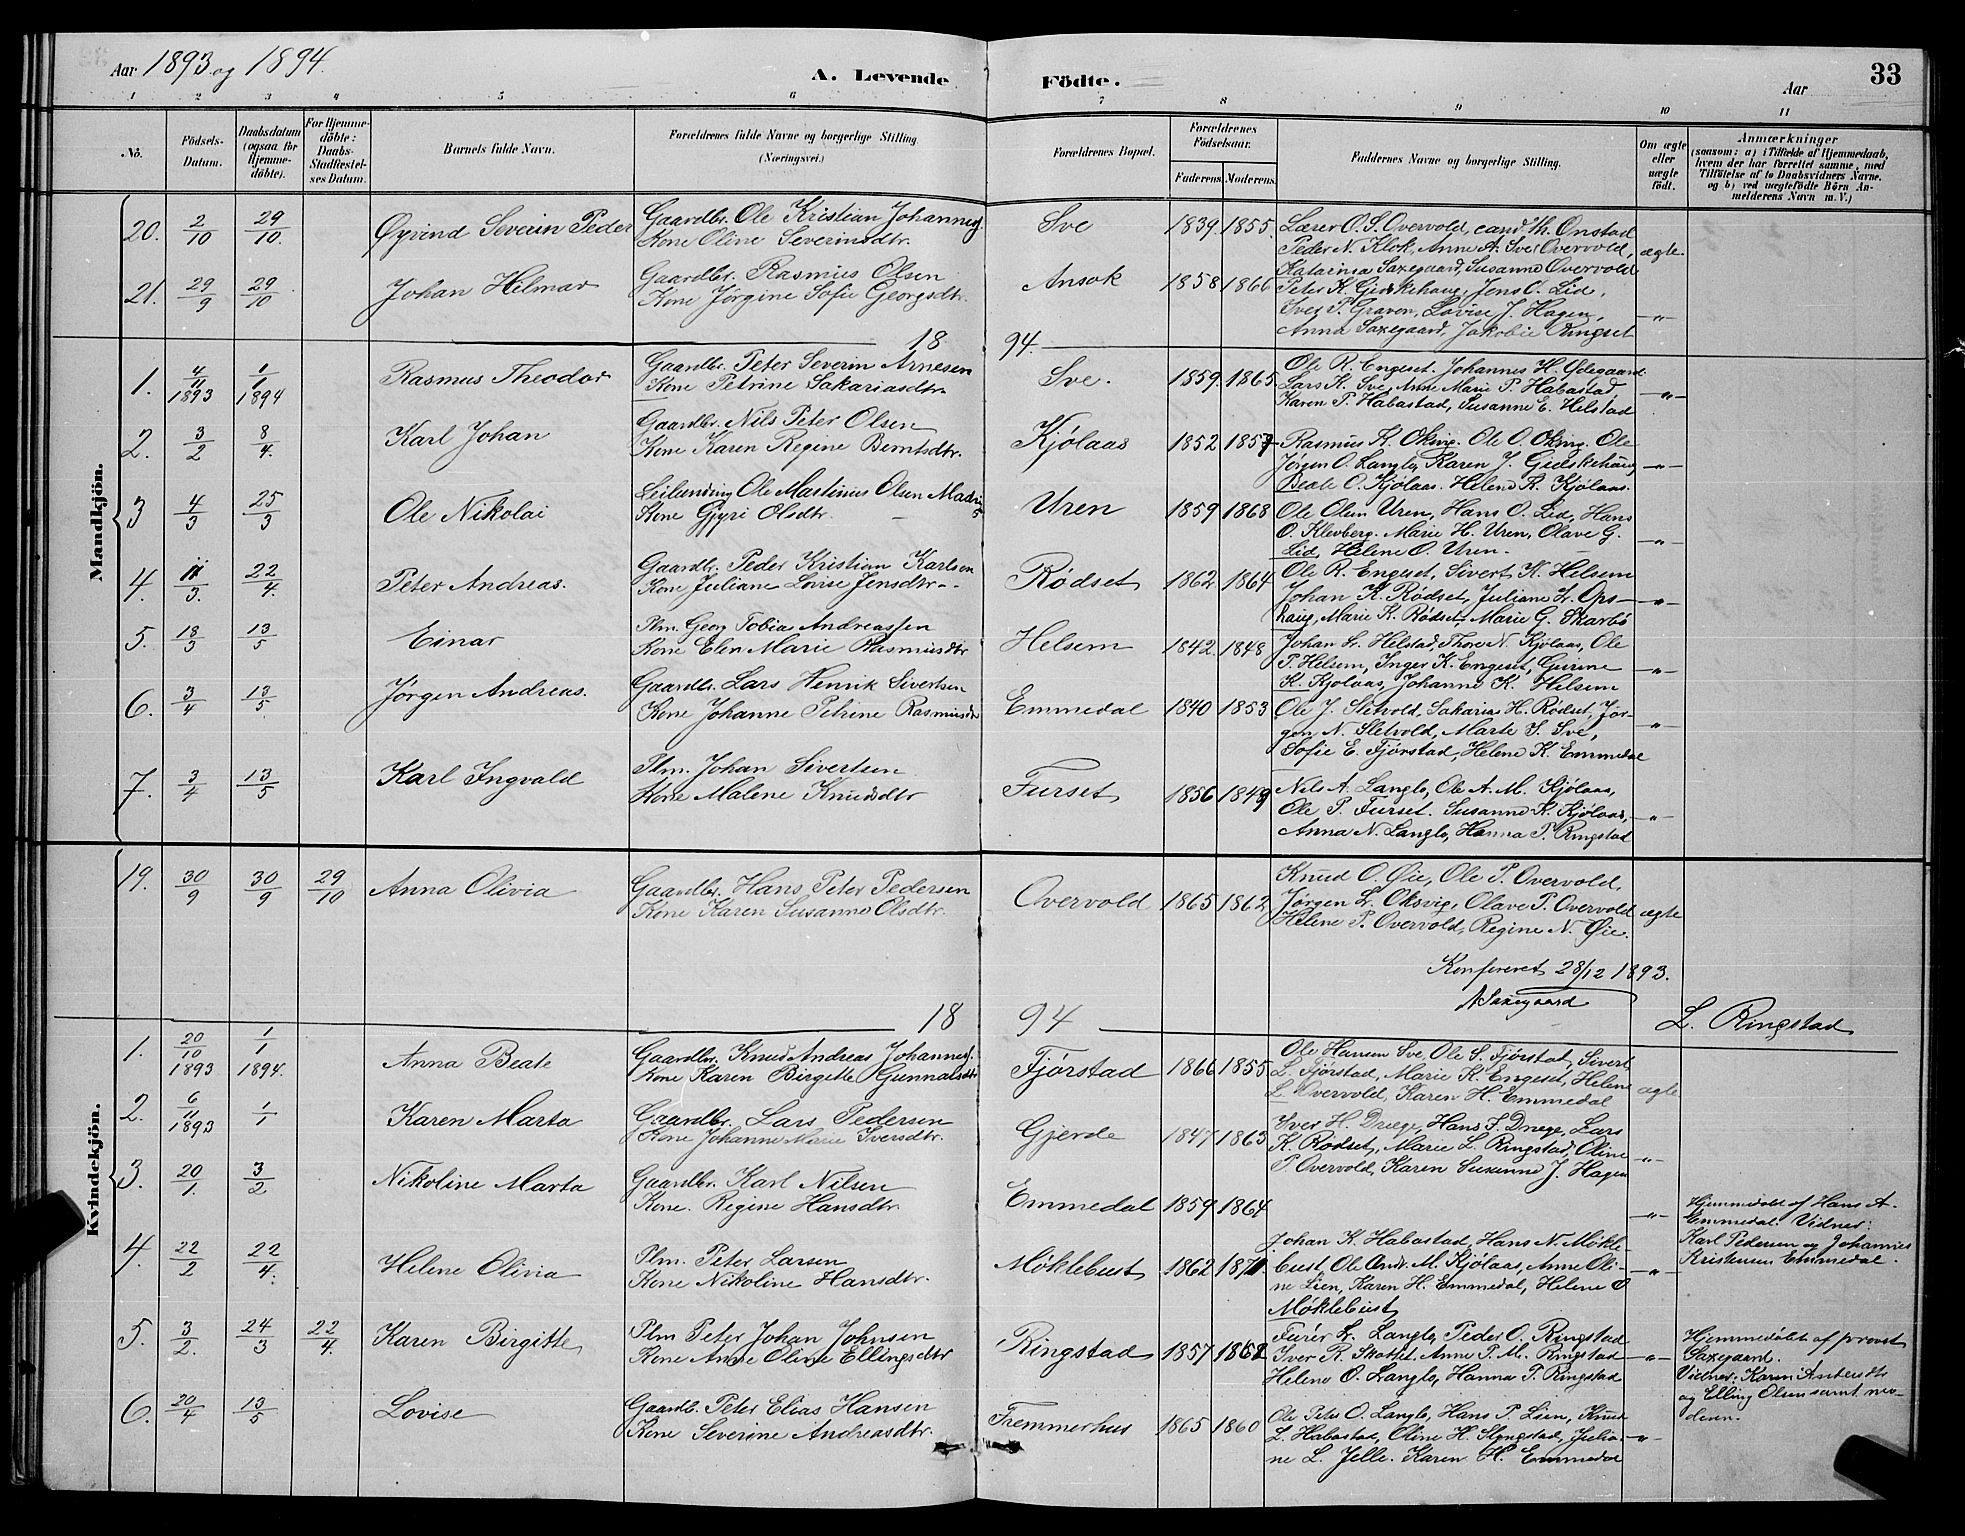 Aar 1893 og 1894.
A. Levende Födte.
Aar
33
1 2 3 4 5 6 7 8 9 10 11
No.
Födsels-Datum.
Daabsdatum (ogsaa for Hjemme-döbte).
For Hjemme-döbte: Daabs-Stadfæstel-ses Datum.
Barnets fulde Navn.
Forældrenes fulde Navne og borgerlige Stilling. (Næringsvei.)
Forældrenes Bopæl.
Forældrenes Födselsaar.
Faderens. Moderens.
Faddernes Navne og borgerlige Stilling.
Om ægte eller uægte födt.
Anmærkninger
(saasom: a) i Tilfælde af Hjemmedaab, hvem der har forrettet samme, med Tilföielse af to Daabsvidners Navne, og b) ved uægtefödte Börn Anmelderens Navn m. V.)
Mandkjön.
20. 2/10 29/10. Øyvind Severin Peder Gaardbr. Ole Kristian Johannes. Sve 1839. 1855. Lærer O. S. Overvold, cand. th. Onstad
Kone Oline Severinsdtr. Peder N. Klok, Anne A. Sve Overvold, ægte.
Katarina Saxegaard, Susanne Overvold
21. 29/9 29/10 Johan Hilmar Gaardbr. Rasmus Olsen Ansok 1858 1866 Peter K. Gidskehaug, Jens O. Lid,
Kone Jørgine Sofie Georgsdtr. Iver P. Graven, Lovise J. Hagen, -"-
Anna Saxegaard, Jakobie Ringset
18 94.
1. 4/11 1893 1/1 1894 Rasmus Theodor Gaardbr. Peter Severin Arnesen Sve. 1859. 1865. Ole R. Engeset. Johannes H. Ødegaard
Kone Petrine Sakariasdtr. Lars K. Sve, Anne Marie P. Habostad, -"-
Karen P. Habostad, Susanne E. Helstad
2. 3/2 8/4. Karl Johan Gaardbr. Nils Peter Olsen Kjölaas 1852 1857 Rasmus K. Oksvig. Ole O. Oksvig. Ole
Kone Karen Regine Berntsdtr. Jørgen O. Langlo, Karen J. Gidskehaug -"-
Beate O. Kjölaas. Helene R. Kjölaas.
3 4/3 25/3 Ole Nikolai Leilending Ole Martinus Olsen Uren 1859 1868 Ole Olsen Uren, Hans O. Lid, Hans
Kone Gjyri Olsdtr. O. Klevberg. Marie H. Uren, Olave G. -"-
Lid, Helene O. Uren.
4. 11/3. 22/4. Peter Andreas. Gaardbr. Peder Kristian Karlsen Rødset 1862 1864 Ole R. Engeset, Sivert K. Helsem
Kone Juliane Lovise Jensdtr. Johan K. Rødset, Juliane L. Ops- -"-
haug, Marie K. Rødset, Marie G. Skarbö
5. 18/3 13/5 Einar Plm. Georg Tobias Andreassen Helsem 1842. 1848 Johan L. Helstad, Thore N. Kjölaas, Ole
Kone Elen Marie Rasmusdtr P. Helsem, Inger K. Engeset, Gurine -"-
K. Kjolaas, Johanne K. Helsem
6. 3/4 13/5 Jörgen Andreas. Gaardbr. Lars Henrik Sivertsen Emmedal 1840 1853 Ole J. Sletvold, Sakarias H. Rødset, Jör-
Kone Johanne Petrine Rasmusdr gen N. Sletvold, Marte S. Sve, -"-
Sofie E. Fjörstad, Helene K. Emmedal
7. 3/4 13/5 Karl Ingvald Plm. Johan Sivertsen Furset 1856 1849 Nils A. Langlo, Ole A. M. Kjölaas,
Kone Malene Knudsdtr Ole P. Furset. Susanne K. Kjölaas, -"-
Anna N. Langlo, Hanna P. Ringstad
Kvindekjön.
19. 30/9 30/9 29/10 Anna Olivia Gaardbr. Hans Peter Pedersen Overvold 1865 1862 Knud O. Øie, Ole P. Overvold,
Kone Karen Susanne Olsdtr. Jørgen L. Oksvig, Olave P. Overvold ægte
Helene P. Overvold, Regine N. Øie.
Konfereret 28/12 1893.
Saxegaard
L. Ringstad
18 94
1. 20/10 1893 1/1 1894. Anna Beate Gaardbr. Knud Andreas Johannes. Fjörstad 1866 1855 Ole Hansen Sve, Ole S. Fjörstad, Sivert
Kone Karen Birgitte Gunnarsdtr L. Fjörstad, Marie K. Engeset, Helene ægte
L. Overvold, Karen H. Emmedal
2. 6/11 1893 1/1 Karen Marta Gaardbr. Lars Pedersen Gjerde 1847 1863 Iver H. Drege, Hans I. Drege, Lars
Kone Johanne Marie Iversdtr. K. Rødset, Marie L. Ringstad, Oline -"-
P. Overvold, Karen Susanne J. Hagen
3. 20/1. 3/2 Nikoline Marta Gaardbr. Karl Nilsen Emmedal 1859 1864 -"-
Kone. Regine Hansdtr.
Hjemmedøbt af Hans A. Emmedal. Vidner: Karl Pedersen og Johannes Kristensen Emmedal.
4. 22/2 22/4. Helene Olivia Plm. Peter Larsen Møklebust 1862 1871. Johan K. Habostad, Hans N. Møkle-
Kone Nikoline Hansdtr. bust, Ole Andr. M. Kjölaas, Anne Oli- -"-
ne Lien, Karen H. Emmedal, Helene O
Møklebust
5. 3/2. 24/3 22/4. Karen Birgitte Plm Peter Johan Johnsen Ringstad 1857 1862 Furér L. Langlo, Peder O. Ringstad
Kone Anne Oline Ellingsdtr Iver R. Skottet. Anne P. M. Ringstad -"-
Helene O. Langlo, Hanna P. Ringstad
Hjemmedøbt af provst Saxegaard. Vidner: Karen og Elling Olsen samt moderen.
6. 20/4 13/5 Lovise Gaardb. Peter Elias Hansen Fremmerhus 1865 1860 Ole Peter O. Langlo, Hans P. Lien, Knud
Kone Severine Andreasdtr. L. Habostad, Oline H. Slyngstad, Julia- -"-
ne L. Jelle. Karen H. Emmedal